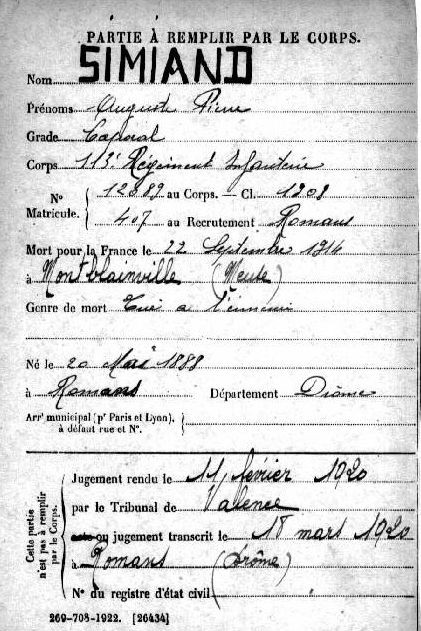 PARTIE À REMPLIR PAR LE CORPS.
Nom SIMIAND
Prénoms Auguste Pierre
Grade Caporal
Corps 113e Régiment Infanterie
N° Matricule. 12889 au Corps. — Cl. 1908
407 au Recrutement Romans
Mort pour la France le 22 Septembre 1914
à Montblainville (Meuse)
Genre de mort Tué a l'ennemi
Né le 20 Mai 1888
à Romans Département Drôme
Arrt municipal (pr Paris et Lyon),
à défaut rue et N°.
Cette partie
n'est pas à remplir
par le Corps.
Jugement rendu le 11 février 1920
par le Tribunal de Valence
acte ou jugement transcrit le 18 mars 1920
à Romans (Drôme)
N° du registre d'état civil
269-708-1922. [26434]